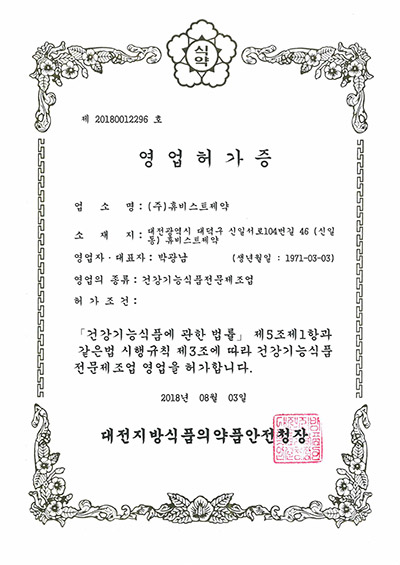 식약
제 20180012296 호
영업허가증
업 소 명 : (주)휴비스트제약
소 재 지 : 대전광역시 대덕구 신일서로104번길 46 (신일
동) 휴비스트제약
영업자·대표자 : 박광남 (생년월일 : 1971-03-03)
영업의 종류 : 건강기능식품전문제조업
허 가 조 건 :
「건강기능식품에 관한 법률」 제5조제1항과
같은법 시행규칙 제3조에 따라 건강기능식품
전문제조업 영업을 허가합니다.
2018년 08월 03일
대전지방식품의약품안전청장